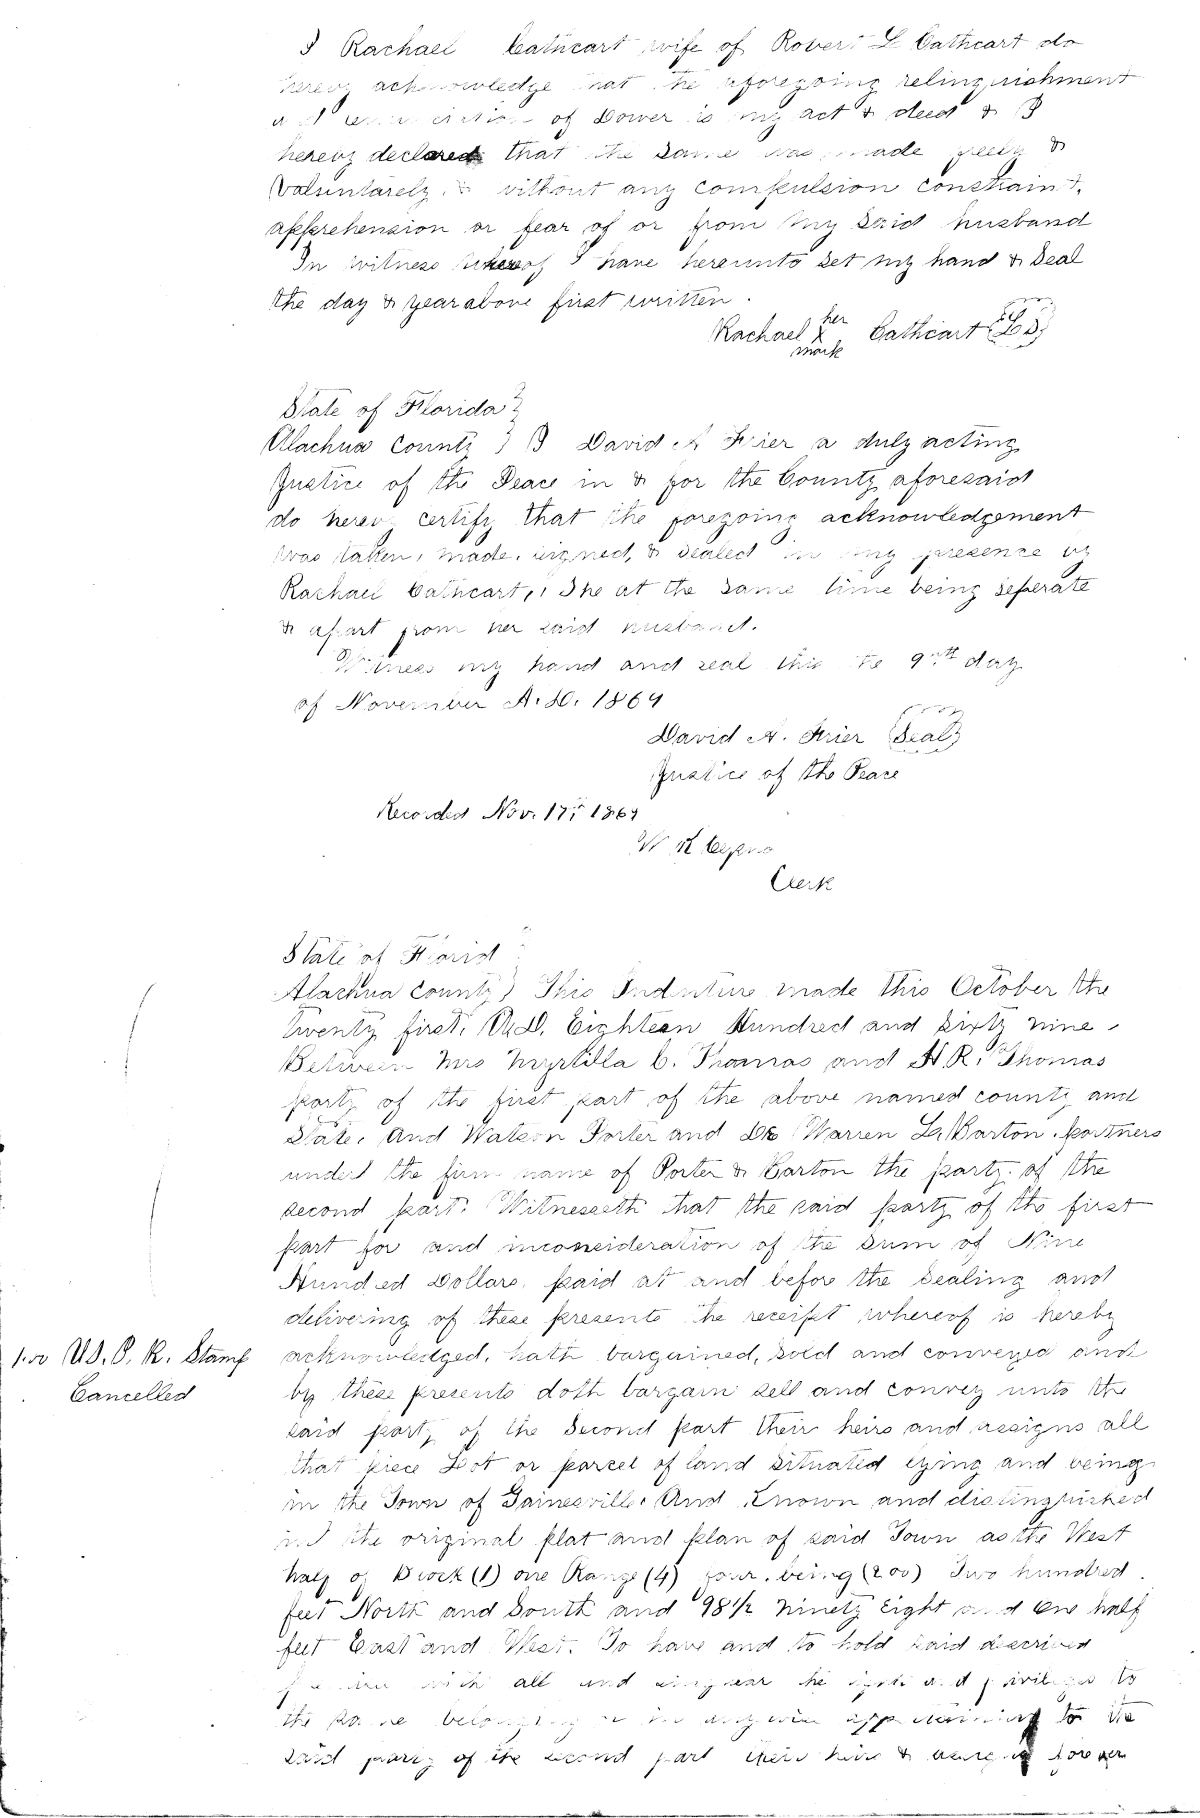 I Rachael Cathcart wife of Robert L Cathcart do
hereby acknowledge that the aforegoing relinquishment
and renunciation of Dower is my act & deed & I
hereby declared that the same was made freely &
Voluntarely & without any compulsion constraint,
apprehension or fear of or from my said husband
In witness whereof I have hereunto set my hand & Seal
the day & year above first written.
her
Rachael X Cathcart {LS}
mark
State of Florida }
Alachua County } I David A Frier a duly acting
Justice of the Peace in & for the County aforesaid
do hereby certify that the foregoing acknowledgement
was taken, made, signed, & sealed in my presence by
Rachael Cathcart, She at the same time being seperate
& apart from her said husband.
Witness my hand and seal this the 9th day
of November A.D. 1869
David A. Frier {Seal}
Justice of the Peace
Recorded Nov. 17th 1869
W K
Clerk
State of Florid
Alachua County } This Indenture made this October the
twenty first, A.D. Eighteen Hundred and Sixty nine.
Between Mrs Myrtilla C. Thomas and H.R. Thomas
party of the first part of the above named county and
State. And Watson Porter and Dr Warren L. Barton. partners
under the firm name of Porter & Barton the party of the
second part. Witnesseth that the said party of the first
part for and inconsideration of the Sum of Nine
Hundred Dollars. paid at and before the Sealing and
delivering of these presents the receipt whereof is hereby
1.00 U.S. P. R. Stamp
Cancelled
acknowledged, hath bargained, Sold and conveyed and
by these presents doth bargain sell and convey unto the
said party of the Second part their heirs and assigns all
that piece Lot or parcel of land situated lying and being
in the Town of Gainesville. And Known and distinguished
in the original plat and plan of said Town as the West
half of Block (1) one Range (4) four. being (200) Two hundred
feet North and South and 98 1/2 ninety Eight and One half
feet East and West. To have and to hold said described
with all and singular the and privileges to
the same belonging or in anywise appertaining to the
said party of the second part their heirs & assigns forever